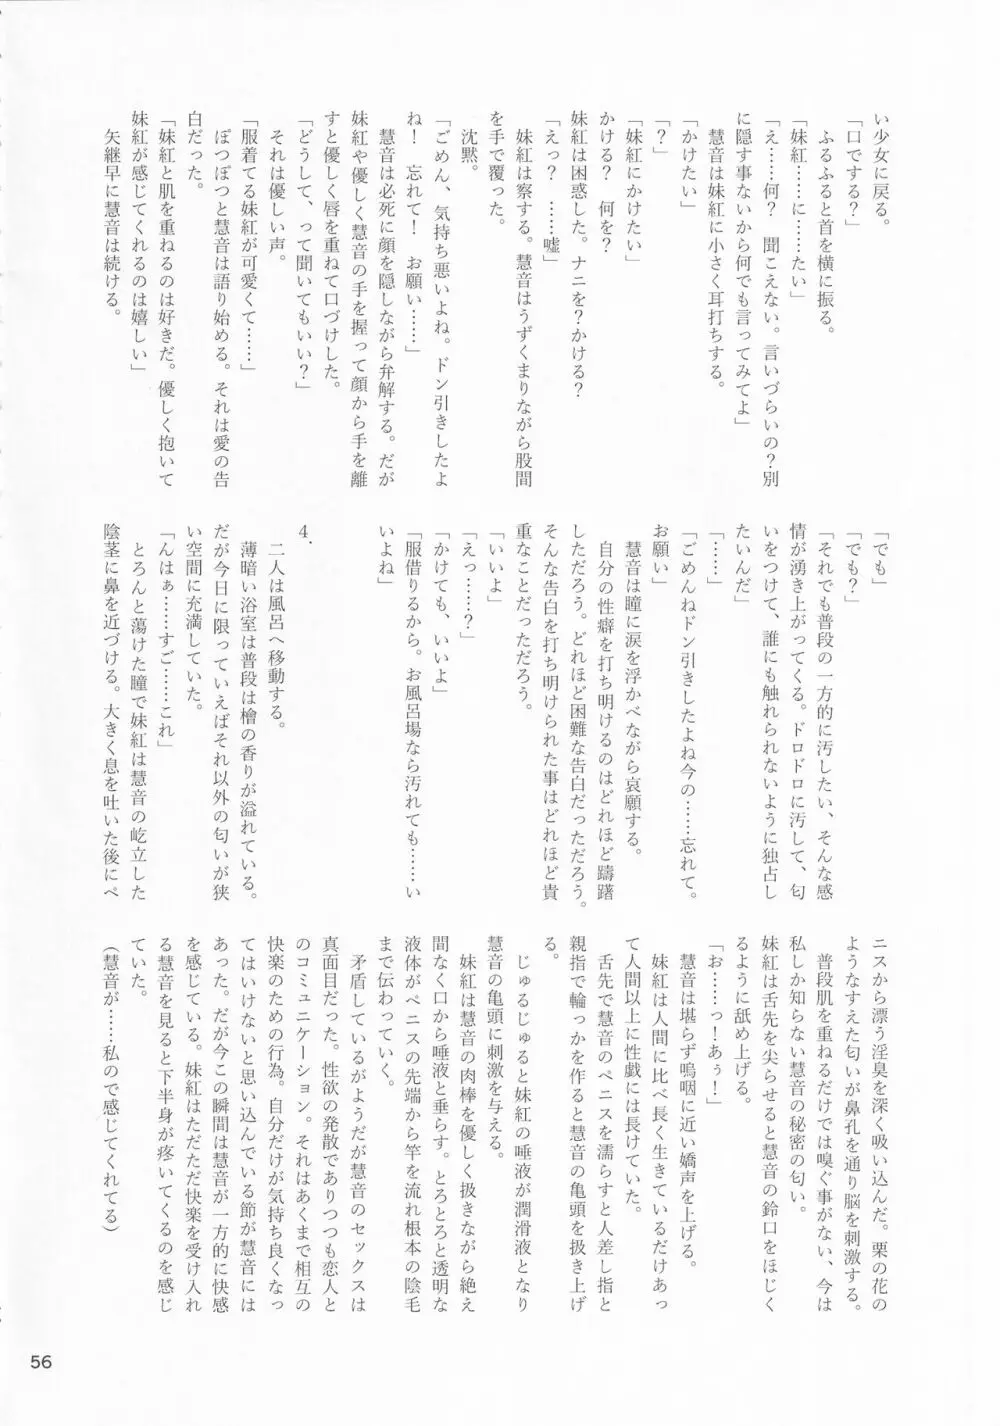 い少女に戻る。
「口でする?」
ふるふると首を横に振る。
「妹紅……に……たい」
「え……何? 聞こえない。言いづらいの?別
に隠す事ないから何でも言ってみてよ」
慧音は妹紅に小さく耳打ちする。
「かけたい」
「?」
「妹紅にかけたい」
かける? 何を?
妹紅は困惑した。ナニを?かける?
「えっ? ……嘘」
妹紅は察する。慧音はうずくまりながら股間
を手で覆った。
沈黙。
「ごめん、気持ち悪いよね。ドン引きしたよ
ね! 忘れて! お願い……」
慧音は必死に顔を隠しながら弁解する。だが
妹紅や優しく慧音の手を握って顔から手を離
すと優しく唇を重ねて口づけした。
「どうして、って聞いてもいい?」
それは優しい声。
「服着てる妹紅が可愛くて……」
ぽつぽつと慧音は語り始める。それは愛の告
白だった。
「妹紅と肌を重ねるのは好きだ。優しく抱いて
妹紅が感じてくれるのは嬉しい」
矢継早に慧音は続ける。
「でも」
「でも?」
「それでも普段の一方的に汚したい、そんな感
情が湧き上がってくる。ドロドロに汚して、匂
いをつけて、誰にも触れられないように独占し
たいんだ」
「……」
「ごめんねドン引きしたよね今の……忘れて。
お願い」
慧音は瞳に涙を浮かべながら哀願する。
自分の性癖を打ち明けるのはどれほど躊躇
しただろう。どれほど困難な告白だっただろう。
そんな告白を打ち明けられた事はどれほど貴
重なことだっただろう。
「いいよ」
「えっ……?」
「かけても、いいよ」
「服借りるから。お風呂場なら汚れても……い
いよね」
4.
二人は風呂へ移動する。
薄暗い浴室は普段は檜の香りが溢れている。
だが今日に限っていえばそれ以外の匂いが狭
い空間に充満していた。
「んはぁ……すご……これ」
とろんと蕩けた瞳で妹紅は慧音の屹立した
陰茎に鼻を近づける。大きく息を吐いた後にペ
ニスから漂う淫臭を深く吸い込んだ。栗の花の
ようなすえた匂いが鼻孔を通り脳を刺激する。
普段肌を重ねるだけでは嗅ぐ事がない、今は
私しか知らない慧音の秘密の匂い。
妹紅は舌先を尖らせると慧音の鈴口をほじく
るように舐め上げる。
「お……っ!あぅ!」
慧音は堪らず嗚咽に近い嬌声を上げる。
妹紅は人間に比べ長く生きているだけあっ
て人間以上に性戯には長けていた。
舌先で慧音のペニスを濡らすと人差し指と
親指で輪っかを作ると慧音の亀頭を扱き上げ
る。
じゅるじゅると妹紅の唾液が潤滑液となり
慧音の亀頭に刺激を与える。
妹紅は慧音の肉棒を優しく扱きながら絶え
間なく口から唾液と垂らす。とろとろと透明な
液体がペニスの先端から竿を流れ根本の陰毛
まで伝わっていく。
矛盾しているがようだが慧音のセックスは
真面目だった。性欲の発散でありつつも恋人と
のコミュニケーション。それはあくまで相互の
快楽のための行為。自分だけが気持ち良くなっ
てはいけないと思い込んでいる節が慧音には
あった。だが今この瞬間は慧音が一方的に快感
を感じている。妹紅はただただ快楽を受け入れ
る慧音を見ると下半身が疼いてくるのを感じ
ていた。
(慧音が……私ので感じてくれてる)
56